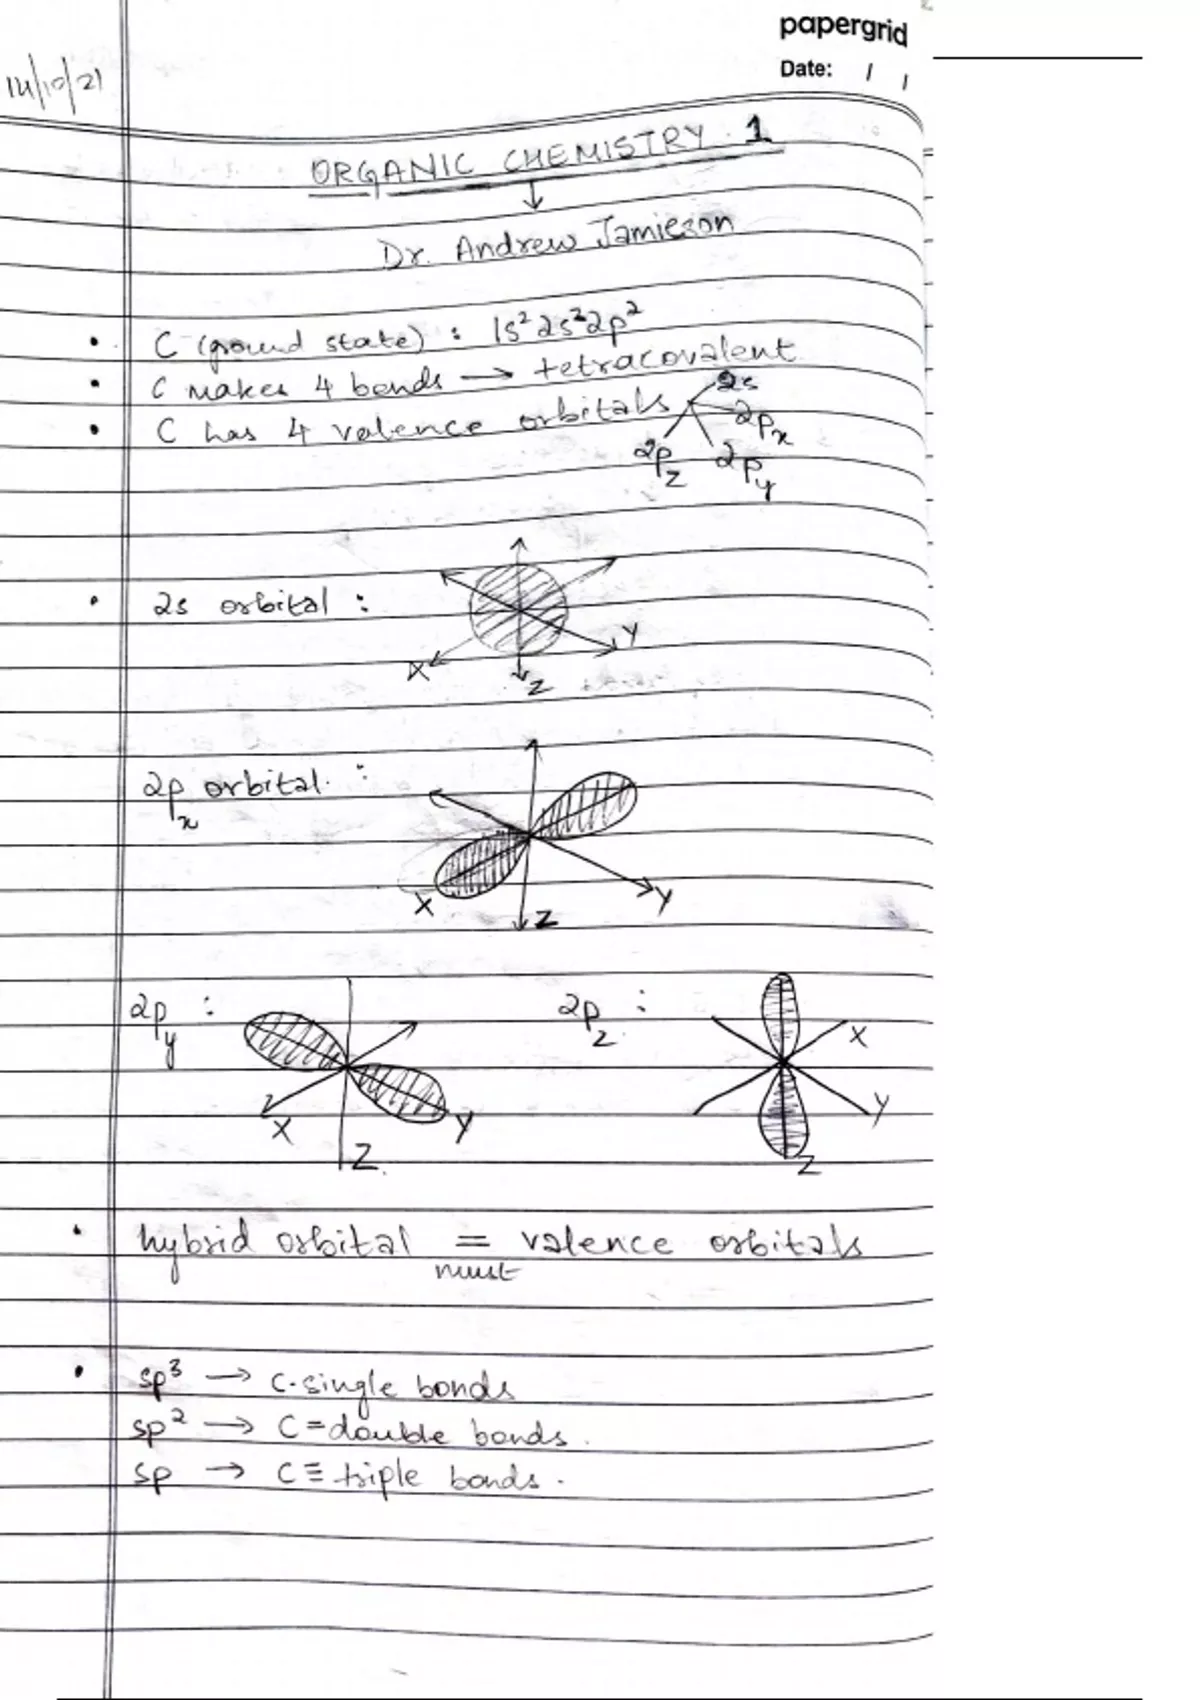 papergrid
Date: / /
14/10/21
ORGANIC CHEMISTRY. 1
↓
Dr. Andrew Jamieson
• C (ground state) : 1s² 2s² 2p²
• C makes 4 bonds → tetracovalent
• C has 4 valence orbitals
2s
2pₓ
2p_z 2p_y
• 2s orbital :
Y
X
Z
2pₓ orbital. :
X
Y
Z
2p_y :
X
Y
Z
2p_z :
X
Y
Z
• hybrid orbital = valence orbitals
must
• sp³ → C-single bonds
sp² → C=double bonds.
sp → C≡triple bonds.